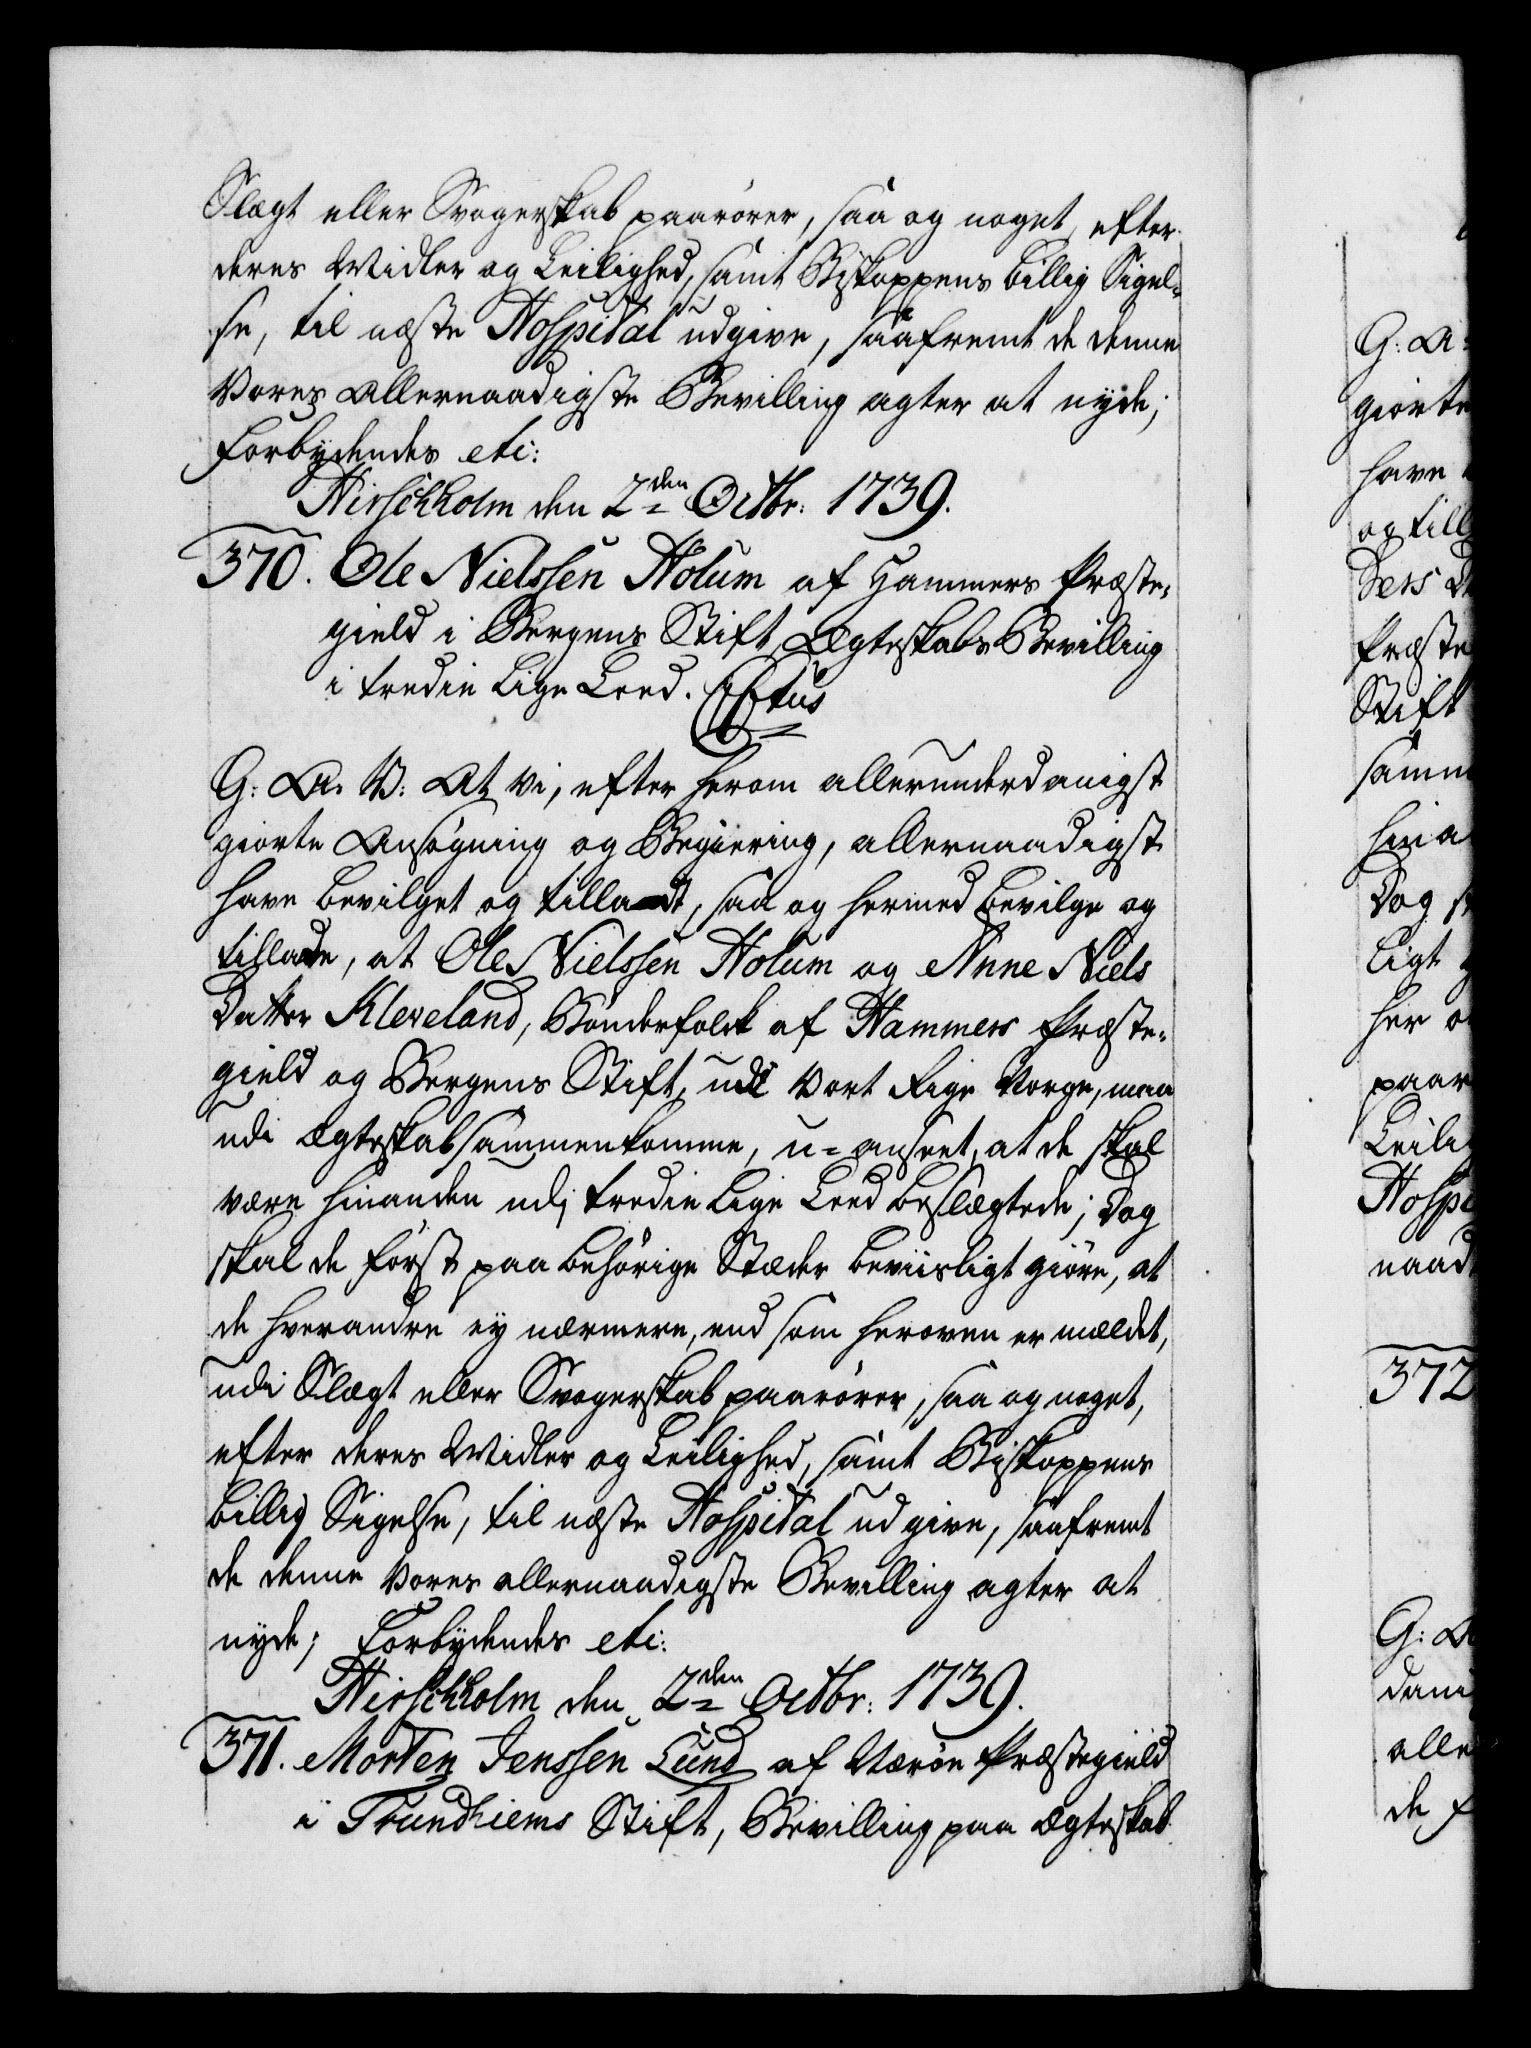 Slægt eller Svogerskab paarører, saa og noget, efter
deres Midler og Leilighed, samt Biskoppens billig Sigel-
se, til næste Hospital udgive, saafremt de denne
Vores Allernaadigste Bevilling agter at nyde;
Forbydendes etc:
Hirschholm den 2den Octbr: 1739.
370. Ole Nielssen Holum af Hammers Præste-
gield i Bergens Stift Ægteskabs Bevilling
i tredie Lige Leed.
G: A. V: At Vi, efter herom allerunderdanigst
giorte Ansøgning og Begiering, allernaadigst
have bevilget og tilladt, saa og hermed bevilge og
tillade, at Ole Nielssen Holum og Anne Niels
Datter Kleveland, Bønderfolck af Hammers Præste-
gield og Bergens Stift, udi Vort Rige Norge, maa
udi Ægteskab sammenkomme, u-anseet, at de skal
være hinanden udi tredie Lige Leed beslægtede; Dog
skal de først paa behørige Stæder beviisligt giøre, at
de hverandre ey nærmere, end som heroven er meldet,
udi Slægt eller Svogerskab paarører, saa og noget,
efter deres Midler og Leilighed, samt Biskoppens
billig Sigelse, til næste Hospital udgive, saafremt
de denne Vores allernaadigste Bevilling agter at
nyde; Forbydendes etc:
Hirschholm den 2den Octbr: 1739.
371. Morten Jenssen Lund af Værøe Præstegield
i Trundhiems Stift, Bevilling paa Ægteskab
G: A:
giorte
have
og till
Præste
Stift
samm
hina
Dog
ligt
her
paar
Leilig
Hospi
naad
372
G: A
dani
alle
de f